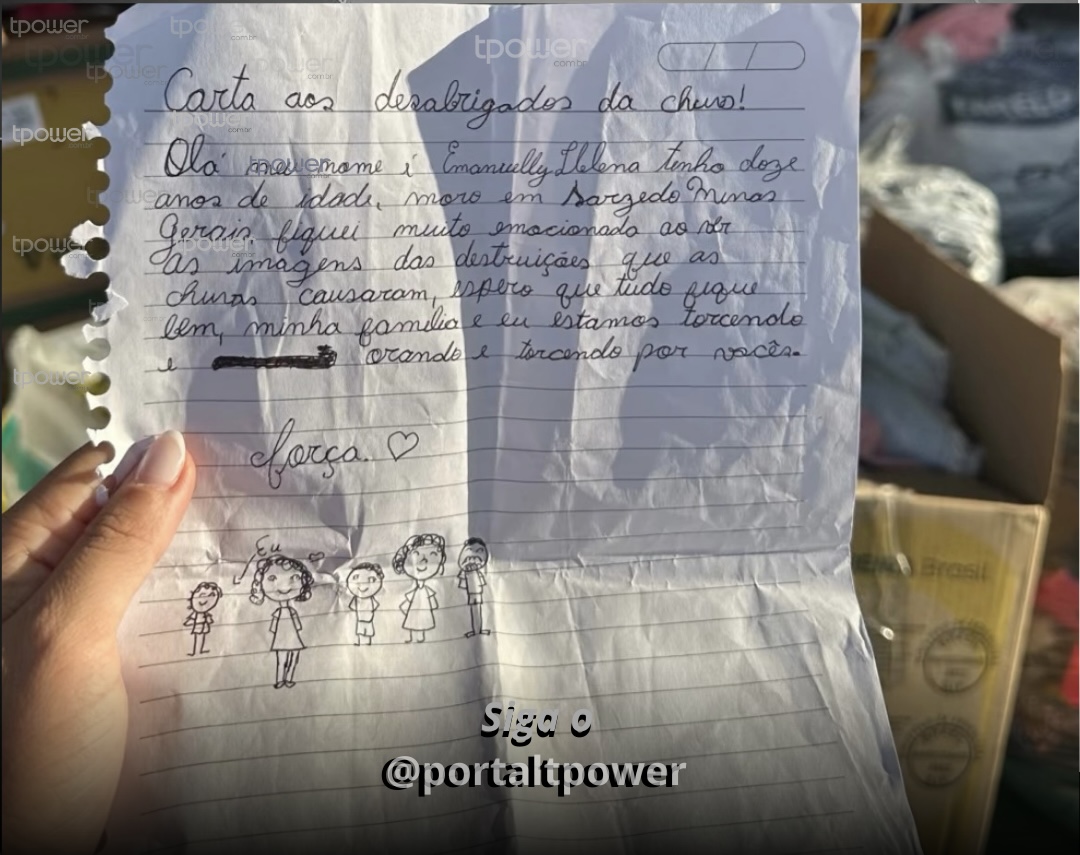 tpower
.com.br
tpower
.com.br
Carta aos desabrigados da chuva!
tpower
Olá meu nome é Emanuelly Helena tenho doze
anos de idade, moro em Sarzedo Minas
Gerais, fiquei muito emocionada ao ver
as imagens das destruições que as
chuvas causaram, espero que tudo fique
bem, minha família e eu estamos torcendo
e orando e torcendo por vocês.
força. ♡
Eu
Brasil
Siga o
@portaltpower